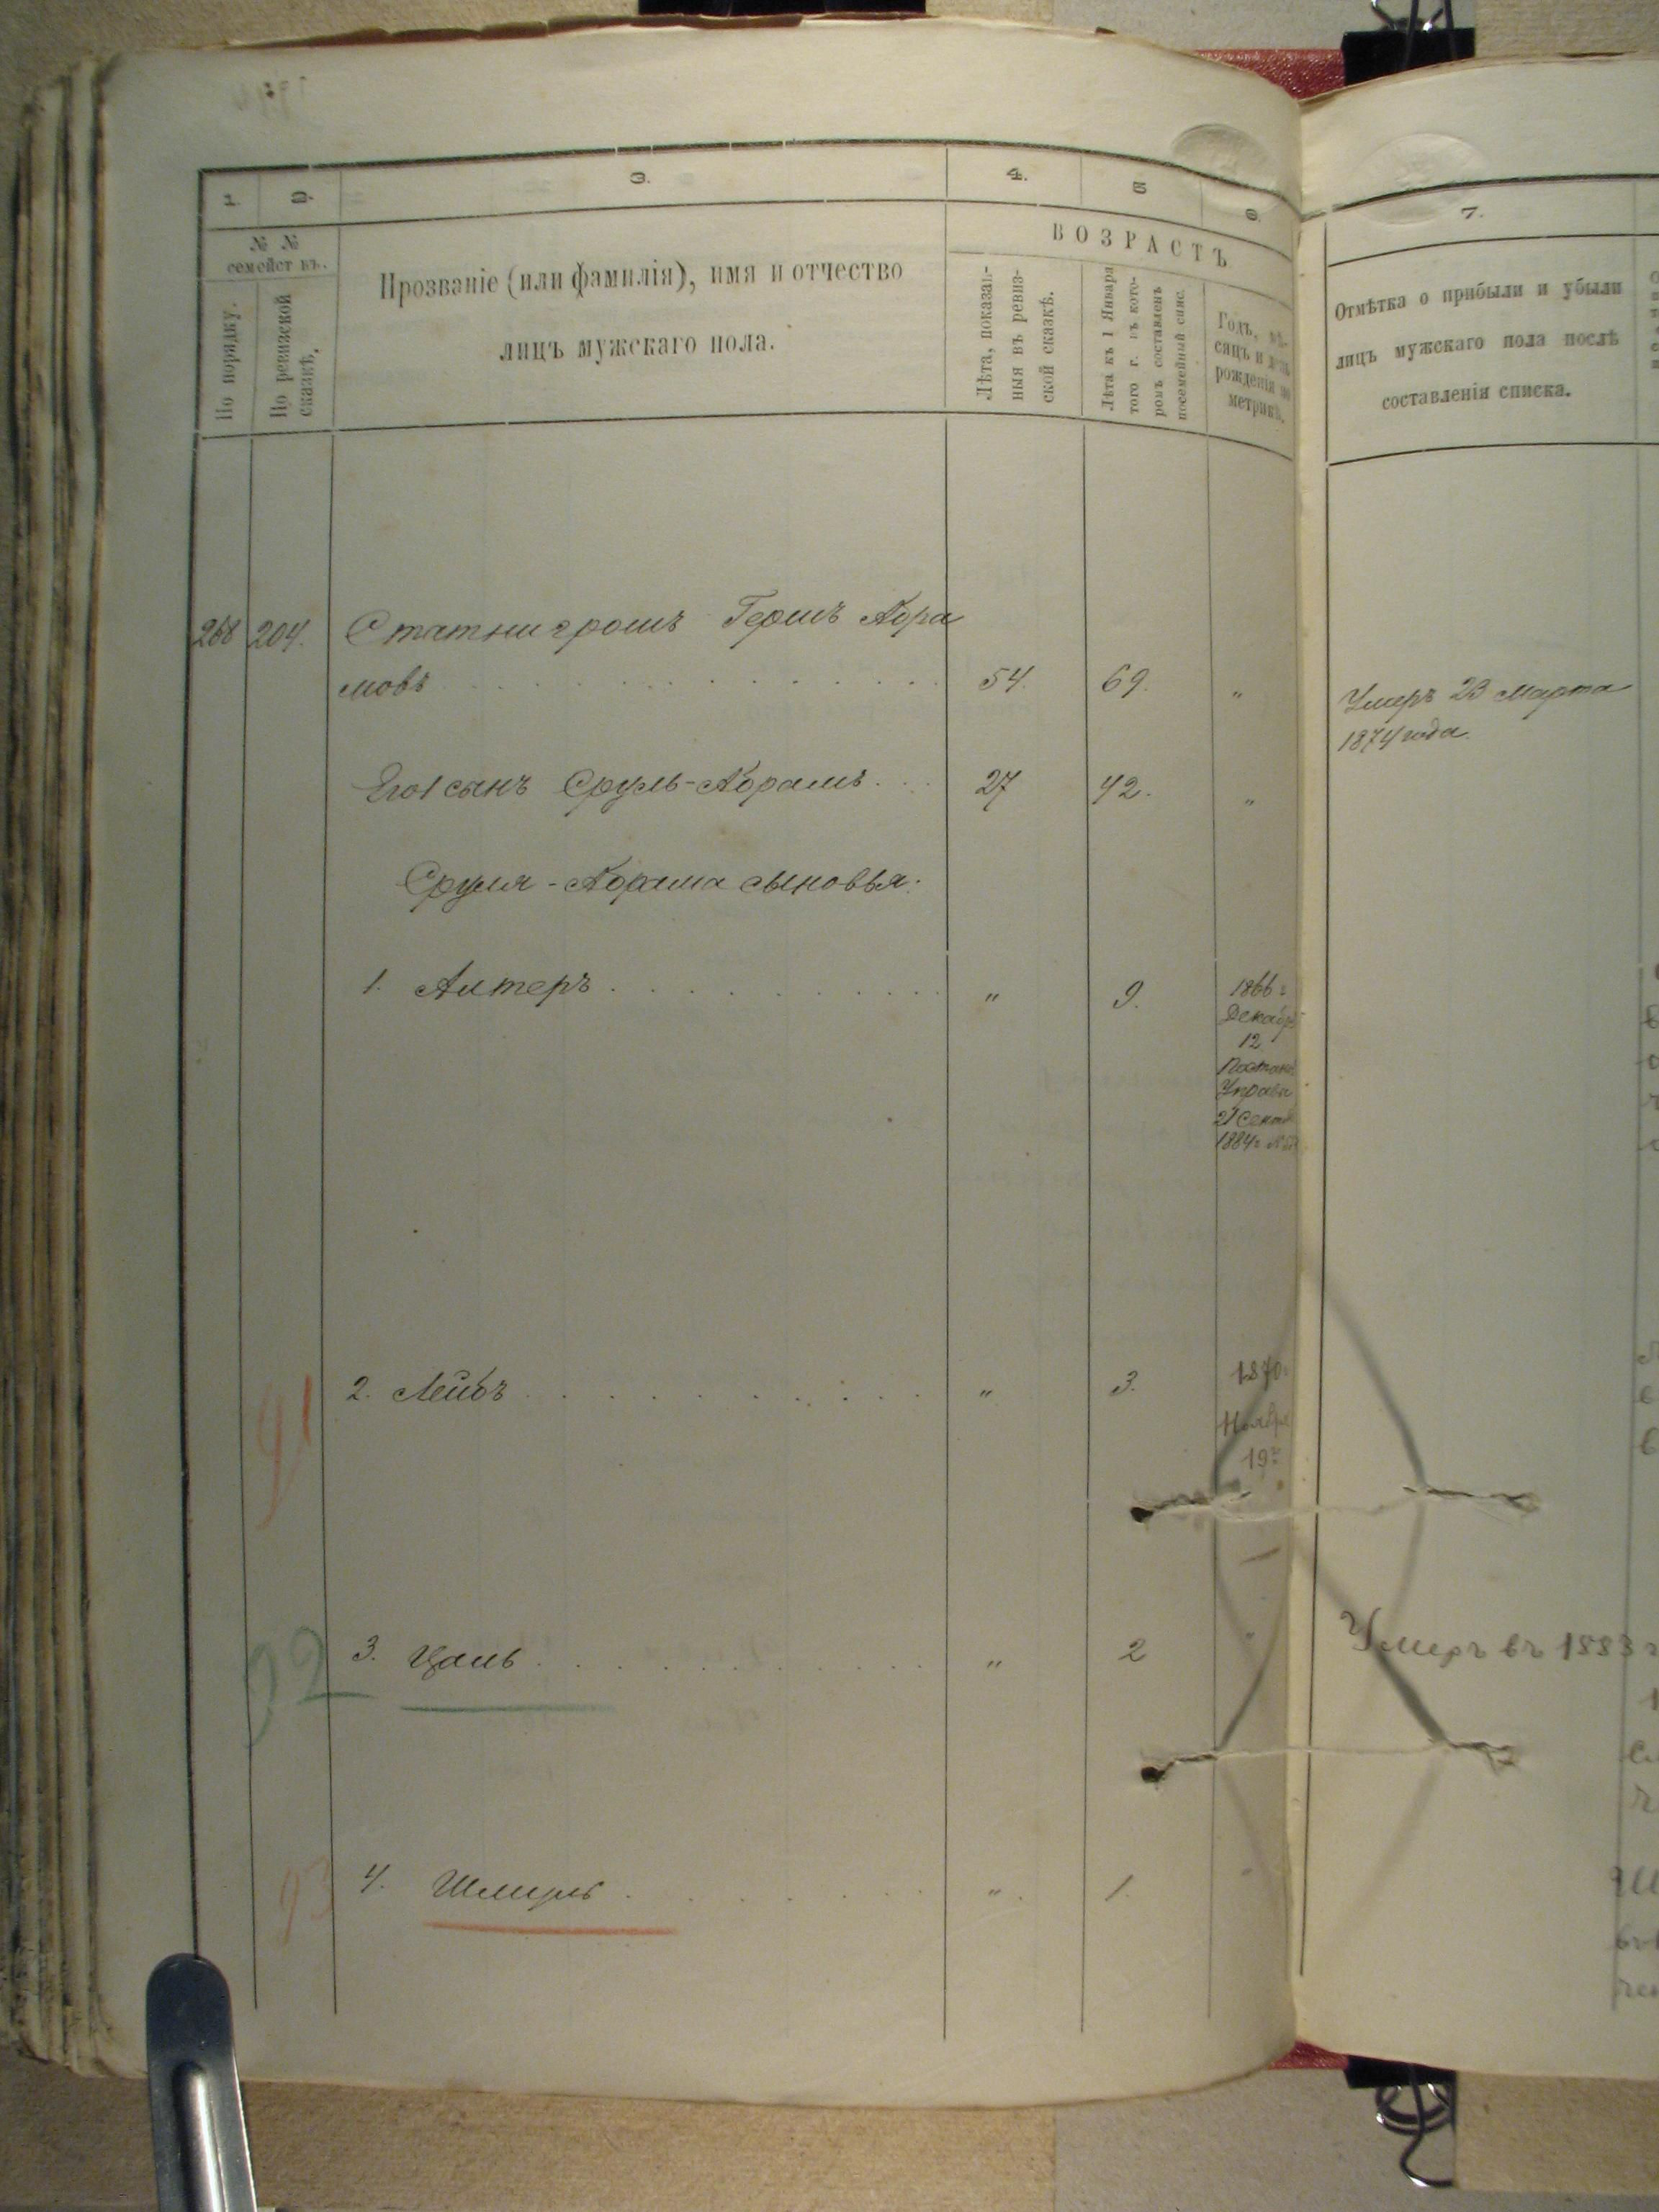 1. 2. 3. 4. 5 6. 7.
№ № семействъ.
По порядку.
По ревизской сказкѣ.
Прозваніе (или фамилія), имя и отчество
лицъ мужскаго пола.
ВОЗРАСТЪ
Лѣта, показан-
ныя въ ревиз-
ской сказкѣ.
Лѣта къ 1 Января
того г. въ кото-
ромъ составленъ
посемейный спис.
Годъ, мѣ-
сяцъ и день
рожденія по
метрикѣ.
Отмѣтка о прибыли и убыли
лицъ мужскаго пола послѣ
составленія списка.
268 204. Статнигрошъ Гершъ Абра
мовъ 54. 69. "
Умеръ 23 Марта
1874 года.
Его сынъ Сруль-Абрамъ 27 42. "
Сруля-Абрама сыновья:
1. Алтеръ " 9. 1866 г
Декабр
12
Постано
Управы
21 Сент
1884 г
91 2. Лейбъ " 3. 1870
Ноября
19
92 3. Цаль " 2 "
Умеръ въ 1883 г
93 4. Шмуль " 1. "